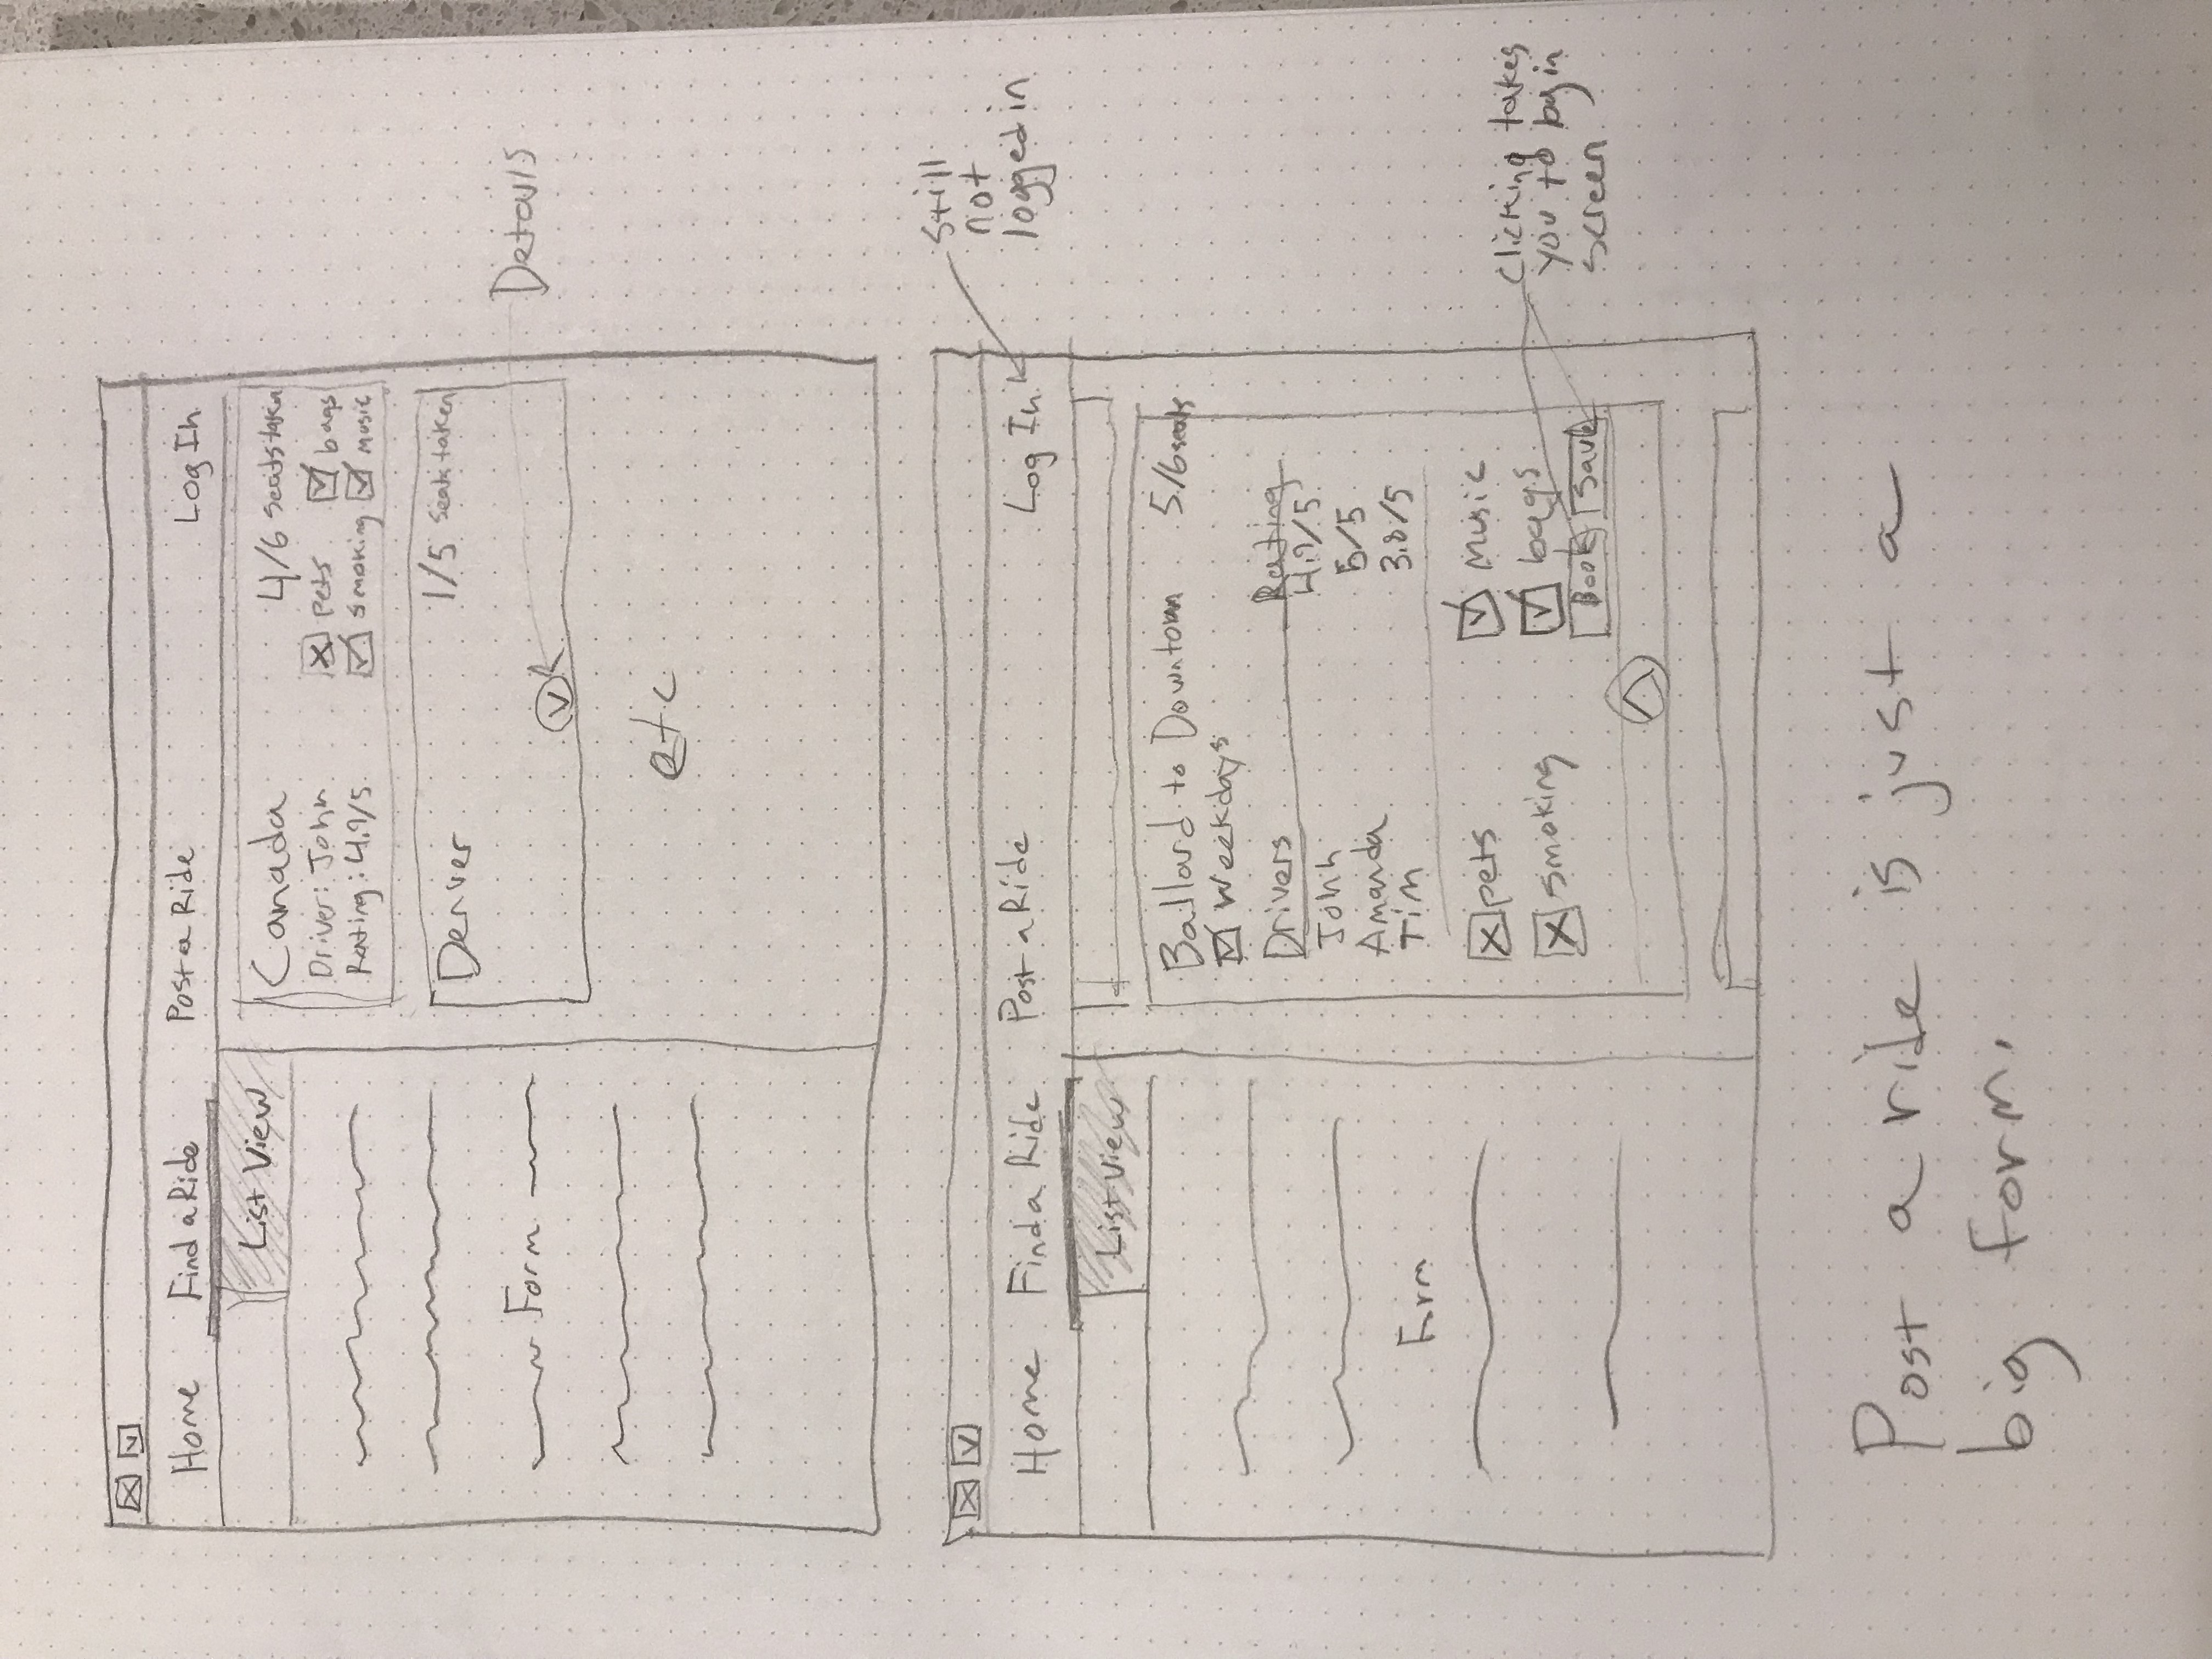 Home Find a Ride Post a Ride Log In
List View
Canada 4/6 seats taken
Driver: John pets bags
Rating: 4.9/5 smoking music
Denver 1/5 seats taken
Form
Details
etc
still
not
logged in
Home Find a Ride Post a Ride Log In
List View
Ballard to Downtown 5/6 seats
Weekdays
Drivers Rating
John 4.9/5
Amanda 5/5
Tim 3.8/5
Form
pets music
smoking bags
Book Save
clicking takes
you to login
screen
Post a ride is just a
big form.